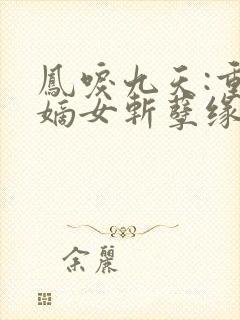 鳳唳九天:重
嫡女斬孽緣
余麗